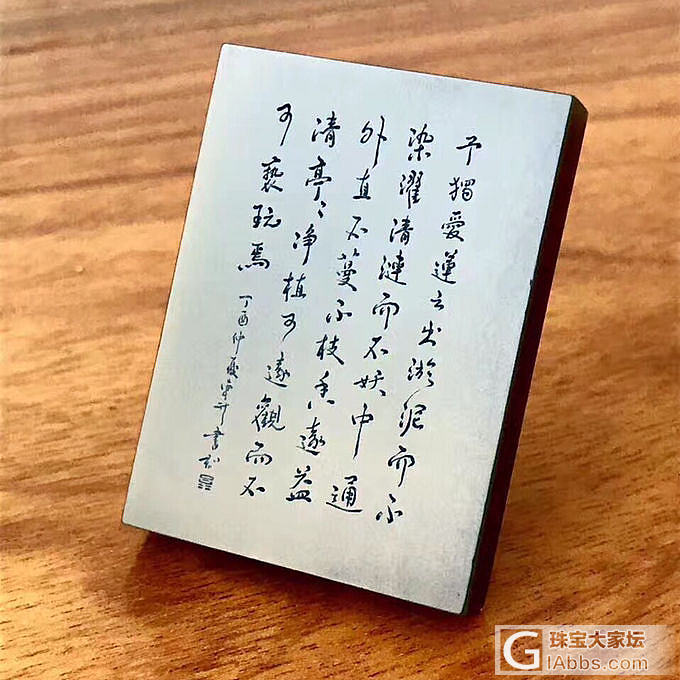 予獨愛蓮之出淤泥而不
染濯清漣而不妖中通
外直不蔓不枝香遠益
清亭〻净植可遠觀而不
可褻玩焉
丁酉仲夏書刻
珠宝大家坛
GIAbbs.com